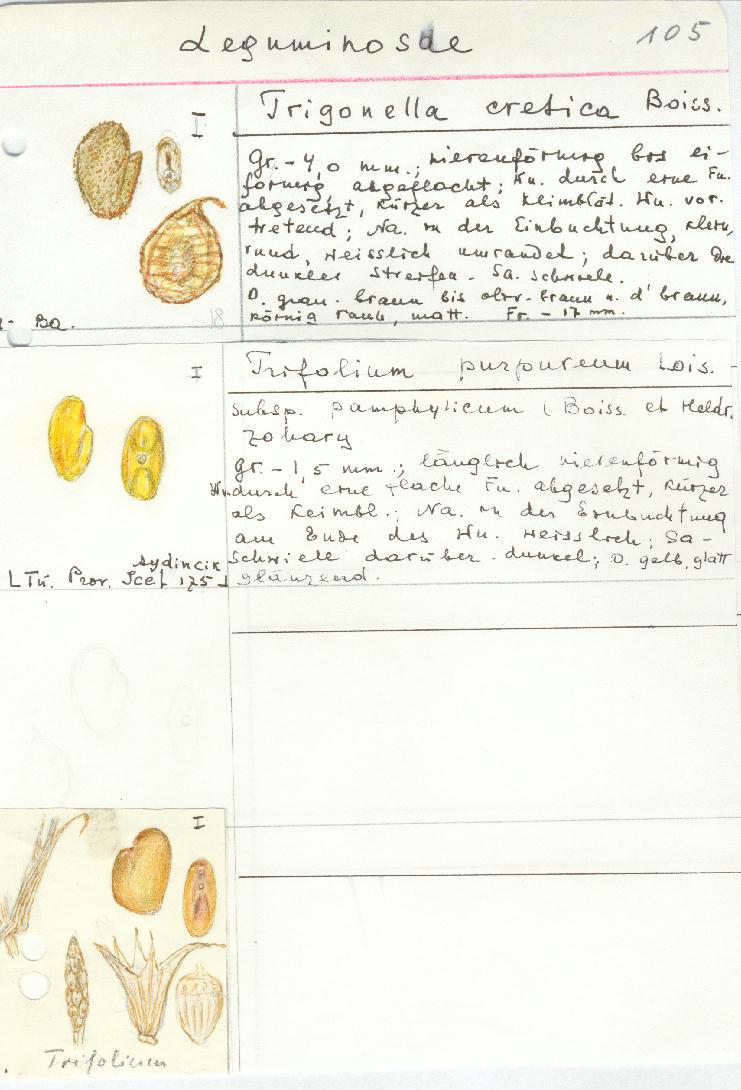 Leguminosae 105
I Trigonella cretica Boiss.
Gr. - 4,0 mm.; nierenförmig bis ei-
förmig, abgeflacht; Wu. durch eine Fu.
abgesetzt, kürzer als Keimblät. Wu. vor-
tretend; Na. in der Einbuchtung, klein,
rund, weisslich umrandet; darüber
dunkler Streifen - Sa. schwiele.
O. grau-braun bis oliv-braun u. d'braun,
körnig rauh, matt. Fr. - 17 mm.
Ba.
18
I Trifolium purpureum Lois. -
subsp. pamphylicum (Boiss. et Heldr.
Zohary
Gr. - 1,5 mm.; länglich nierenförmig
Wu. durch eine flache Fu. abgesetzt, kürzer
als Keimbl.; Na. in der Einbuchtung
am Ende des Wu. weisslich; Sa-
schwiele darüber dunkel; O. gelb, glatt
glänzend.
Aydincik
LTü. Prov. Icel 175
I
Trifolium